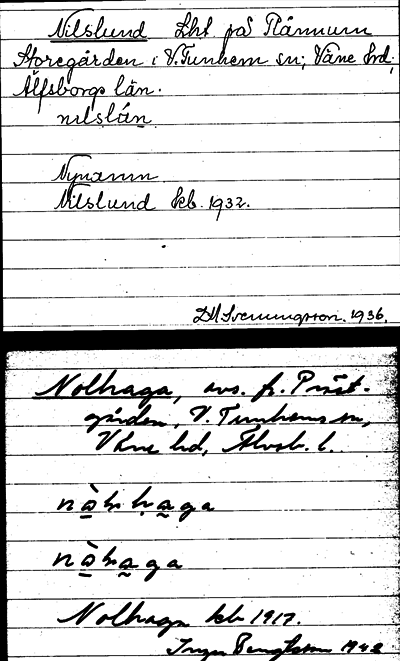 Nilslund Lht på Rånnum
Storegården i V. Tunhem sn; Väne hd;
Älfsborgs län.
nılslún

Nynamn
Nilslund kb. 1932.
D M Svenungsson. 1936.
Nolhaga, avs. fr. Präst-
gården, V. Tunhems sn,
Väne hd, Älvsb. l.
Nolhaga kb 1917.
Inga Bengtsson 1942